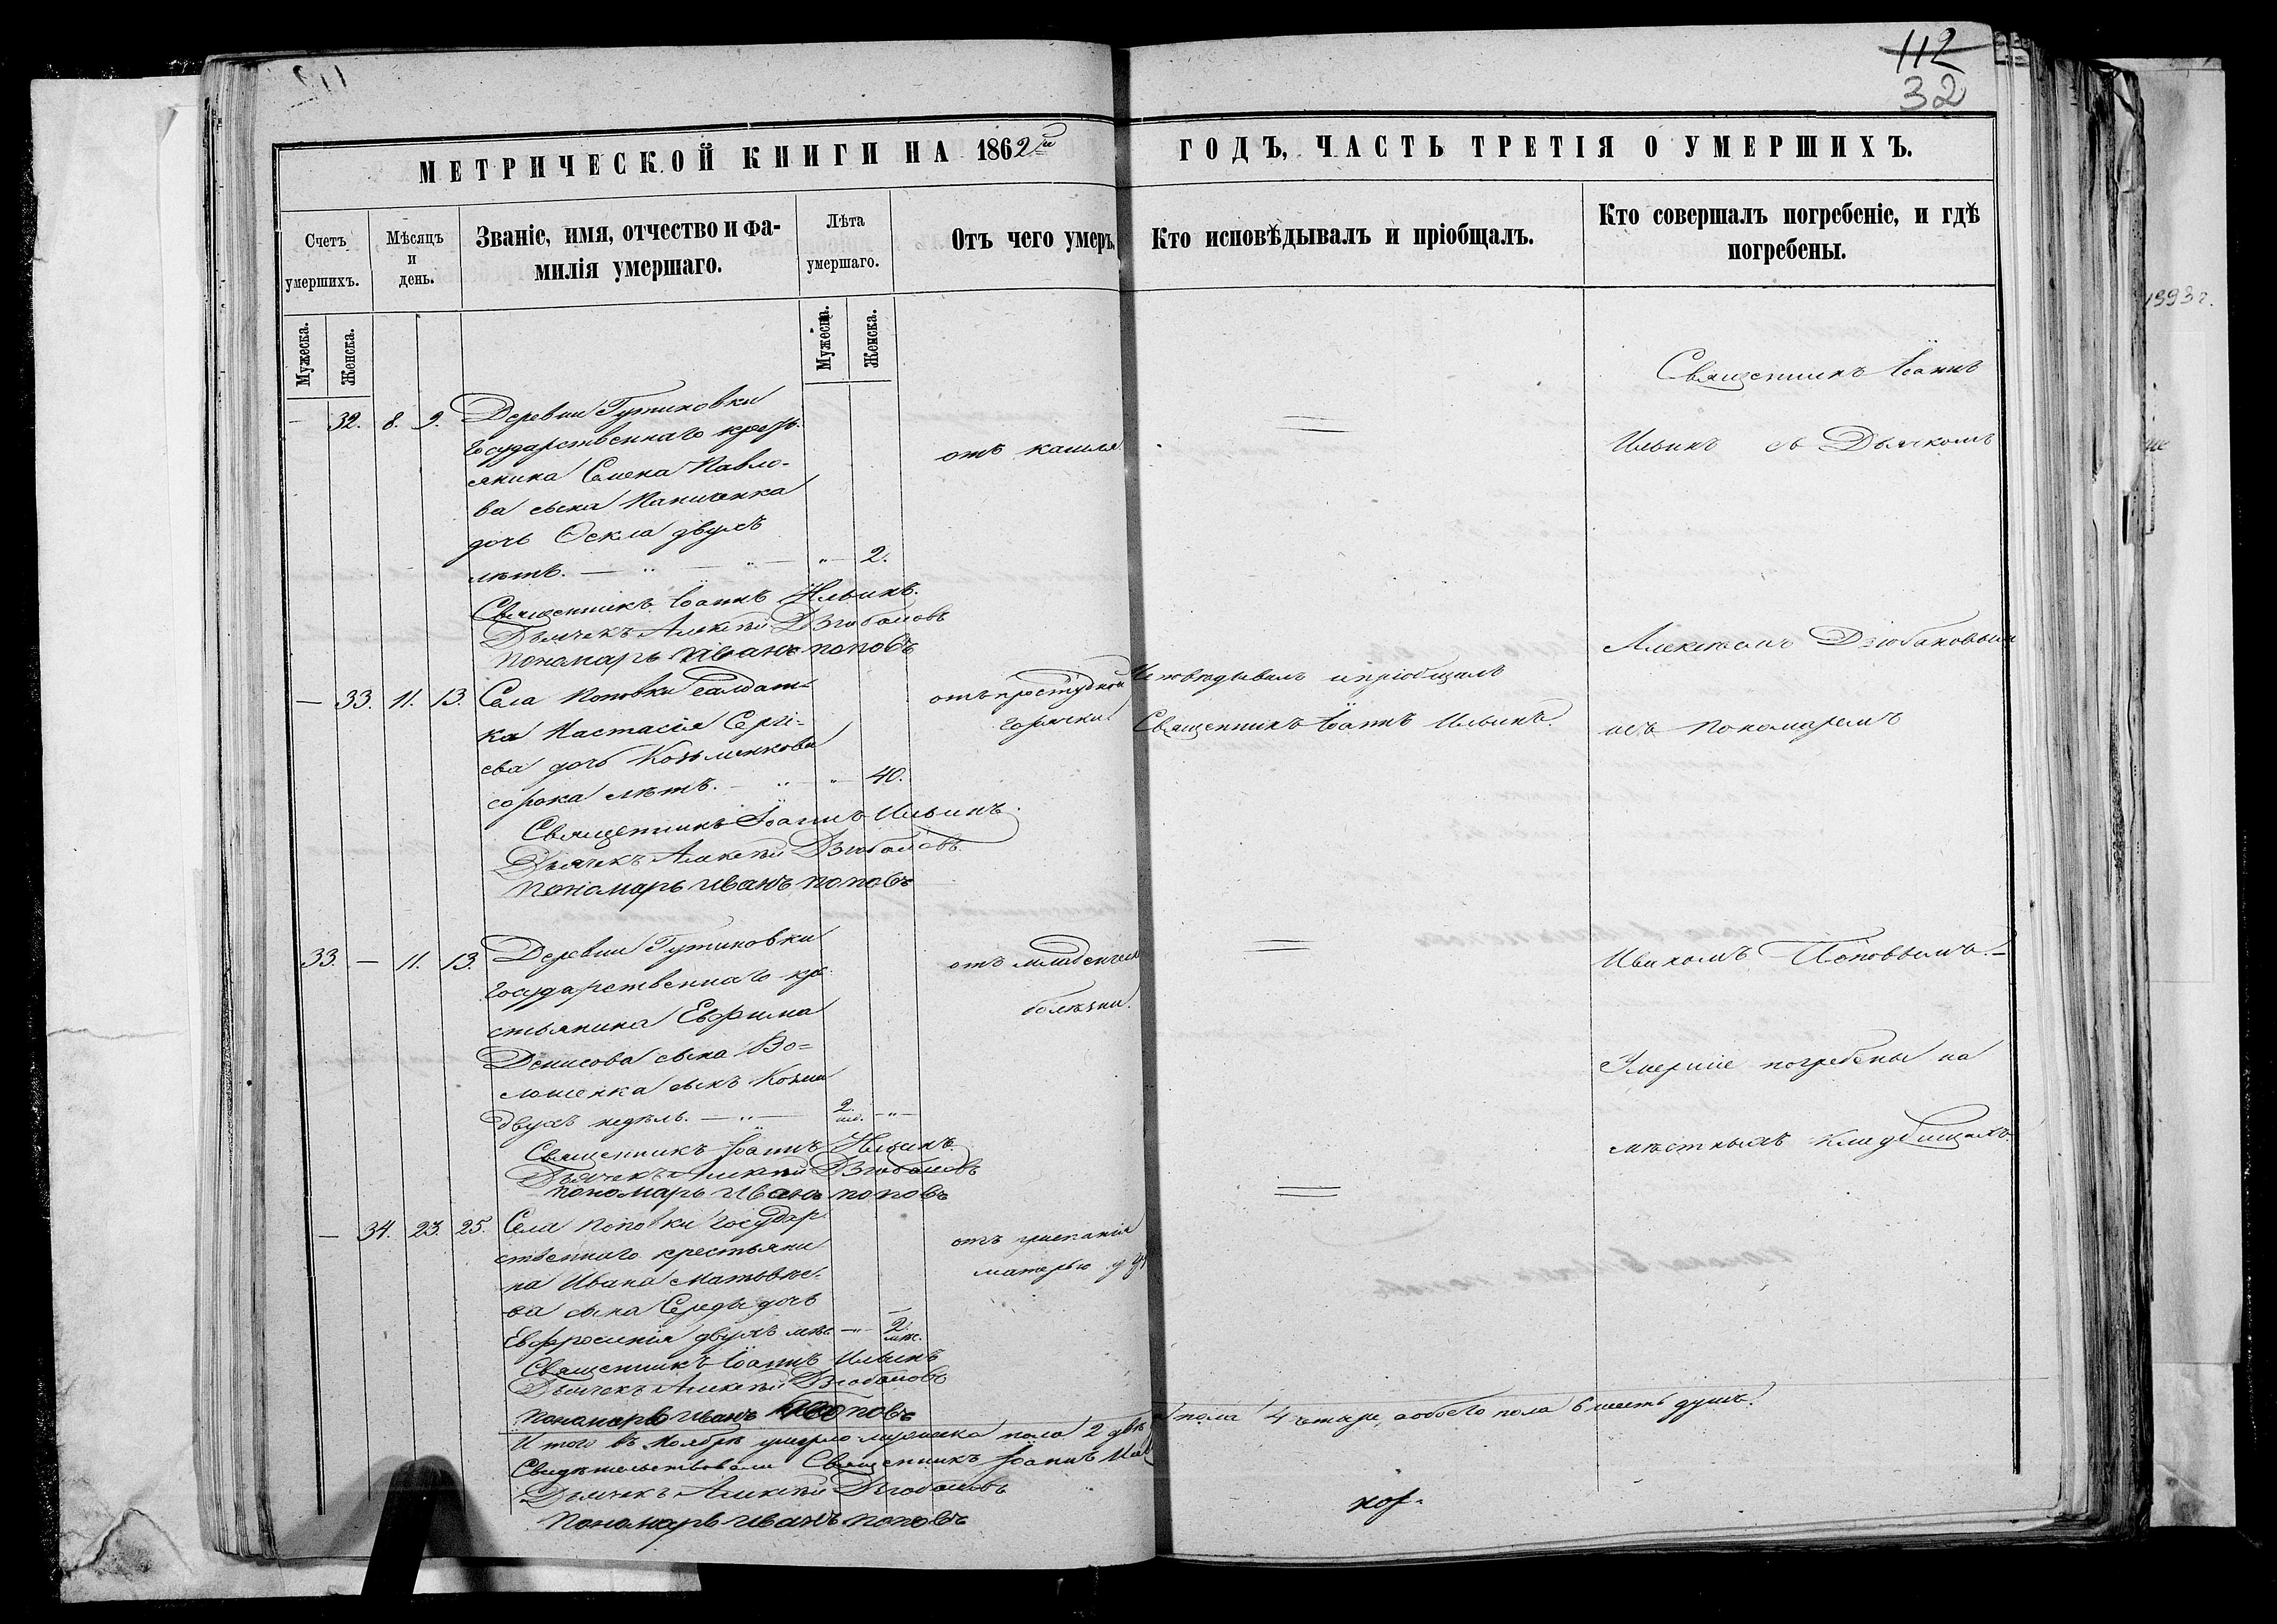 112
32
МЕТРИЧЕСКОЙ КНИГИ НА 1862й ГОДЪ, ЧАСТЬ ТРЕТІЯ О УМЕРШИХЪ.
Счетъ умершихъ.
Мѣсяцъ и день.
Званіе, имя, отчество и фа-
милія умершаго.
Лѣта умершаго.
Отъ чего умеръ.
Кто исповѣдывалъ и пріобщалъ.
Кто совершалъ погребеніе, и гдѣ
погребены.
Мужеска.
Женска.
Мужеска.
Женска.
— 32. 8. 9. Деревни Гутниковки
Государственнаго кресть-
янина Семена Павло-
ва сына Паниченка
дочь Ѳекла двухъ
лѣтъ. — " — " — " — 2.
отъ кашля.
Священникъ Іоаннъ Ильинъ.
Дьячекъ Алексѣй Дзюбановъ
Пономарь Иванъ Поповъ
— 33. 11. 13. Села Поповки салдат-
ка Настасія Сергі-
ева дочь Козьменкова
сорока лѣтъ. — " " — 40.
отъ простудной
горячки
Исповѣдывалъ и пріобщалъ
Священникъ Іоаннъ Ильинъ.
Священникъ Іоаннъ Ильинъ.
Дьячекъ Алексѣй Дзюбановъ.
Пономарь Иванъ Поповъ
33. — 11. 13. Деревни Гутниковки
государственнаго кре-
стьянина Ефима
Денисова сына Во-
лошенка сынъ Козма
двухъ недѣль. — " — 2. нед. — " —
отъ младенческ
болѣзни.
Священникъ Іоаннъ Ильинъ.
Дьячекъ Алексѣй Дзюбановъ
Пономарь Иванъ Поповъ
— 34. 23. 25. Села Поповки государ-
ственнаго крестьяни-
на Ивана Матвѣе-
ва сына Середы дочь
Евфросинія двухъ мѣс — " — 2. мѣс.
отъ
матерью
Священникъ Іоаннъ Ильинъ
Дьячекъ Алексѣй Дзюбановъ
Пономарь Иванъ Поповъ
Итого въ Ноябрѣ умерло мужеска пола 2 двѣ пола 4 четыре, а обоего пола 6 шесть душъ.
Свидѣтельствовали Священникъ Іоаннъ Иль
Дьячекъ Алексѣй Дзюбановъ
Пономарь Иванъ Поповъ
Священникъ Іоаннъ
Ильинъ съ Дьячкомъ
Алексѣемъ Дзюбановым
и съ Пономаремъ
Иваномъ Поповымъ. —
Умершіе погребены на
мѣстныхъ кладбищахъ.